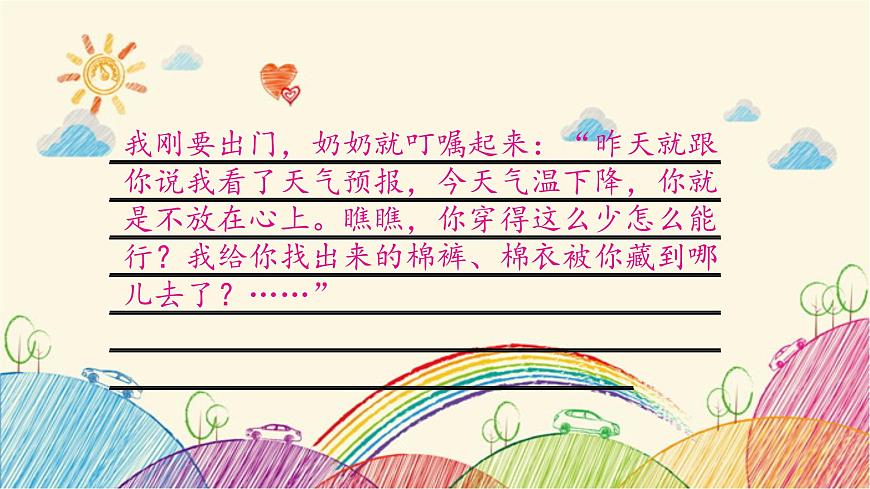 我刚要出门，奶奶就叮嘱起来：“昨天就跟
你说我看了天气预报，今天气温下降，你就
是不放在心上。瞧瞧，你穿得这么少怎么能
行？我给你找出来的棉裤、棉衣被你藏到哪
儿去了？……”